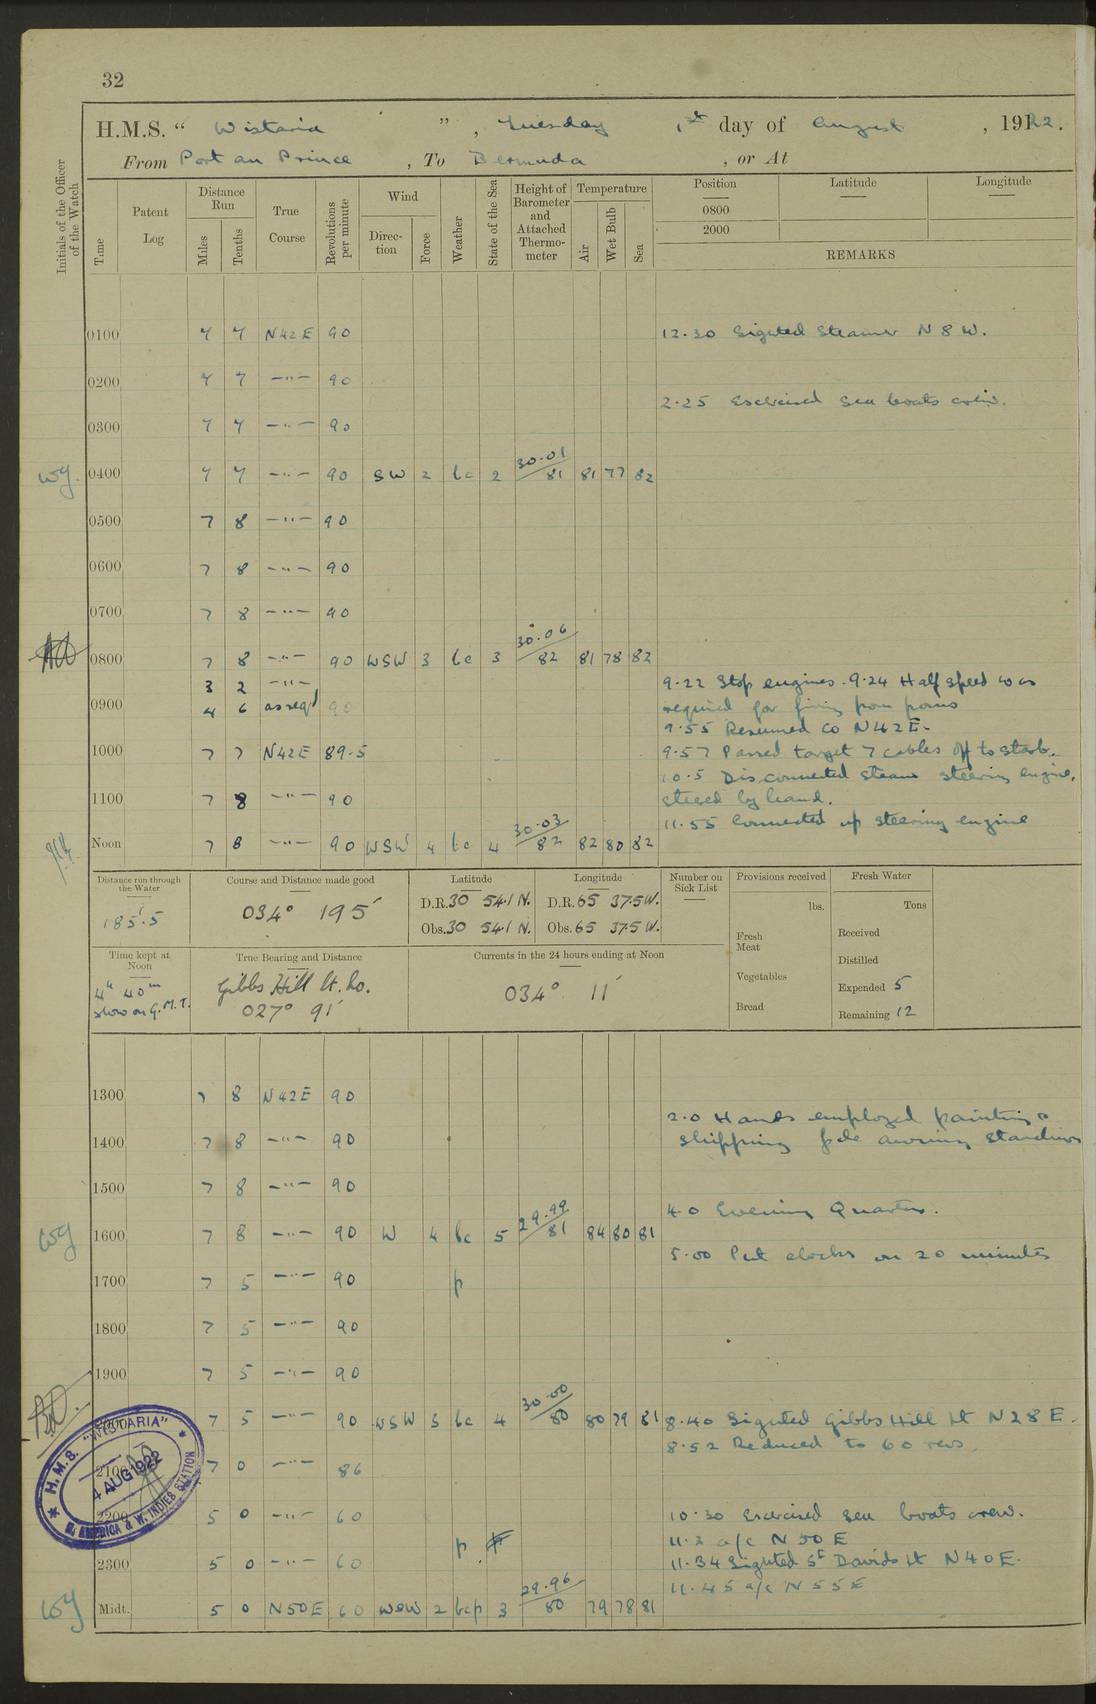 32
H.M.S. “ Wistaria ” , Tuesday 1st day of August , 1922.
From Port au Prince , To Bermuda , or At
Initials of the Officer of the Watch
Time
Patent Log
Distance Run
Miles
Tenths
True Course
Revolutions per minute
Wind
Direction
Force
Weather
State of the Sea
Height of Barometer and Attached Thermometer
Temperature
Air
Wet Bulb
Sea
Position Latitude Longitude
0800
2000
REMARKS
0100 7 7 N42E 90 12.30 Sighted Steamer N 8 W.
0200 7 7 —"— 90
2.25 Exercised sea boats crew.
0300 7 7 —"— 90
wg. 0400 7 7 —"— 90 SW 2 bc 2 30.01/81 81 77 82
0500 7 8 —"— 90
0600 7 8 —"— 90
0700 7 8 —"— 90
0800 7 8 —"— 90 WSW 3 bc 3 30.06/82 81 78 82
3 2 —"— 9.22 Stop engines. 9.24 Half speed & as
0900 4 6 as req 90 required for firing from poms
9.55 Resumed Co N42E.
1000 7 7 N42E 89.5 9.57 Passed target 7 cables off to starb.
10.5 Disconnected steam steering engine,
1100 7 8 —"— 90 steered by hand.
11.55 Connected up steering engine
Noon 7 8 —"— 90 WSW 4 bc 4 30.03/82 82 80 82
Distance run through the Water
185.5
Course and Distance made good
034° 195′
Latitude
D.R. 30 54.1 N.
Obs. 30 54.1 N.
Longitude
D.R. 65 37.5 W.
Obs. 65 37.5 W.
Number on Sick List
Provisions received
lbs.
Fresh Meat
Vegetables
Bread
Fresh Water
Tons
Received
Distilled
Expended 5
Remaining 12
Time kept at Noon
4h 40m slow on G.M.T.
True Bearing and Distance
Gibbs Hill Lt. Ho.
027° 91′
Currents in the 24 hours ending at Noon
034° 11′
1300 7 8 N42E 90
2.0 Hands employed painting &
1400 7 8 —"— 90 shipping awning stanchions
1500 7 8 —"— 90
4.0 Evening Quarters.
wg 1600 7 8 —"— 90 W 4 bc 5 29.99/81 84 80 81
5.00 Put clocks on 20 minutes
1700 7 5 —"— 90 p
1800 7 5 —"— 90
1900 7 5 —"— 90
2000 7 5 —"— 90 WSW 3 bc 4 30.00/80 80 79 81 8.40 Sighted Gibbs Hill Lt N28E.
8.52 Reduced to 60 revs.
2100 7 0 —"— 86
2200 5 0 —"— 60 10.30 Exercised sea boats crew.
p 11.2 a/c N50E
2300 5 0 —"— 60 11.34 Sighted St Davids Lt N40E.
11.45 a/c N55E
wg Midt. 5 0 N50E 60 WSW 2 bcp 3 29.96/80 79 78 81
H.M.S. “WISTARIA”
4 AUG 1922
N. AMERICA & W. INDIES STATION